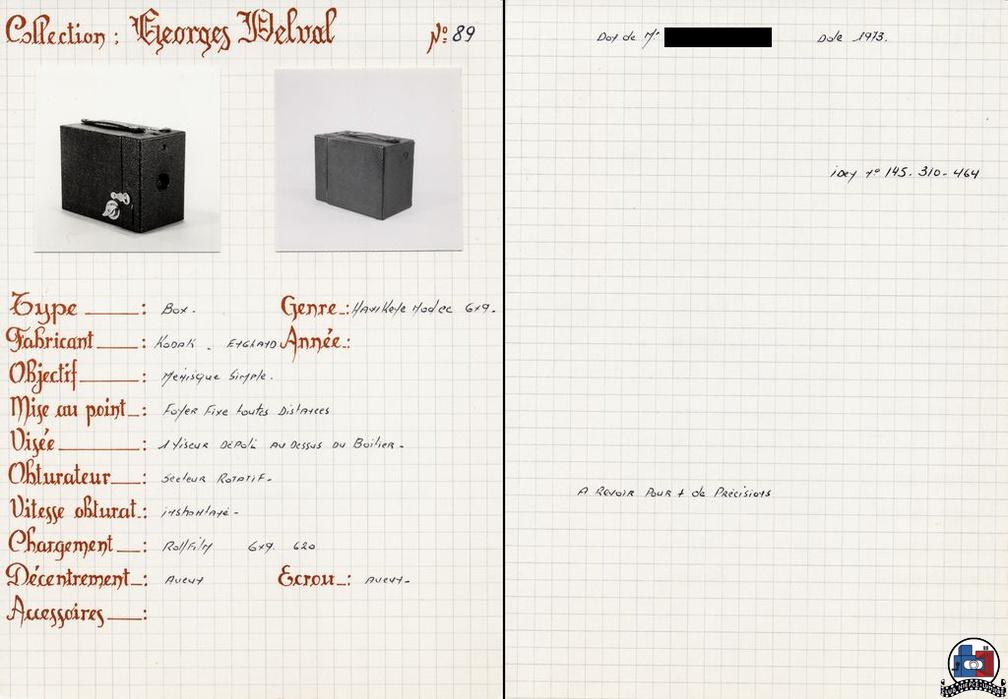 Collection : Georges Delval Nº 89
Type : Box.
Genre : Hawkeye Model 6x9.
Fabricant : Kodak - England
Année :
Objectif : Ménisque Simple.
Mise au point : Foyer Fixe toutes Distances
Visée : 1 Viseur Dépoli au Dessus du Boitier -
Obturateur : Secteur Rotatif -
Vitesse obturat. : instantané -
Chargement : Rollfilm 6x9. 620
Décentrement : Aucun
Ecrou : Aucun -
Accessoires :
Don de Mr Date 1973.
nº 145-310-464
A Revoir Pour + de Précisions